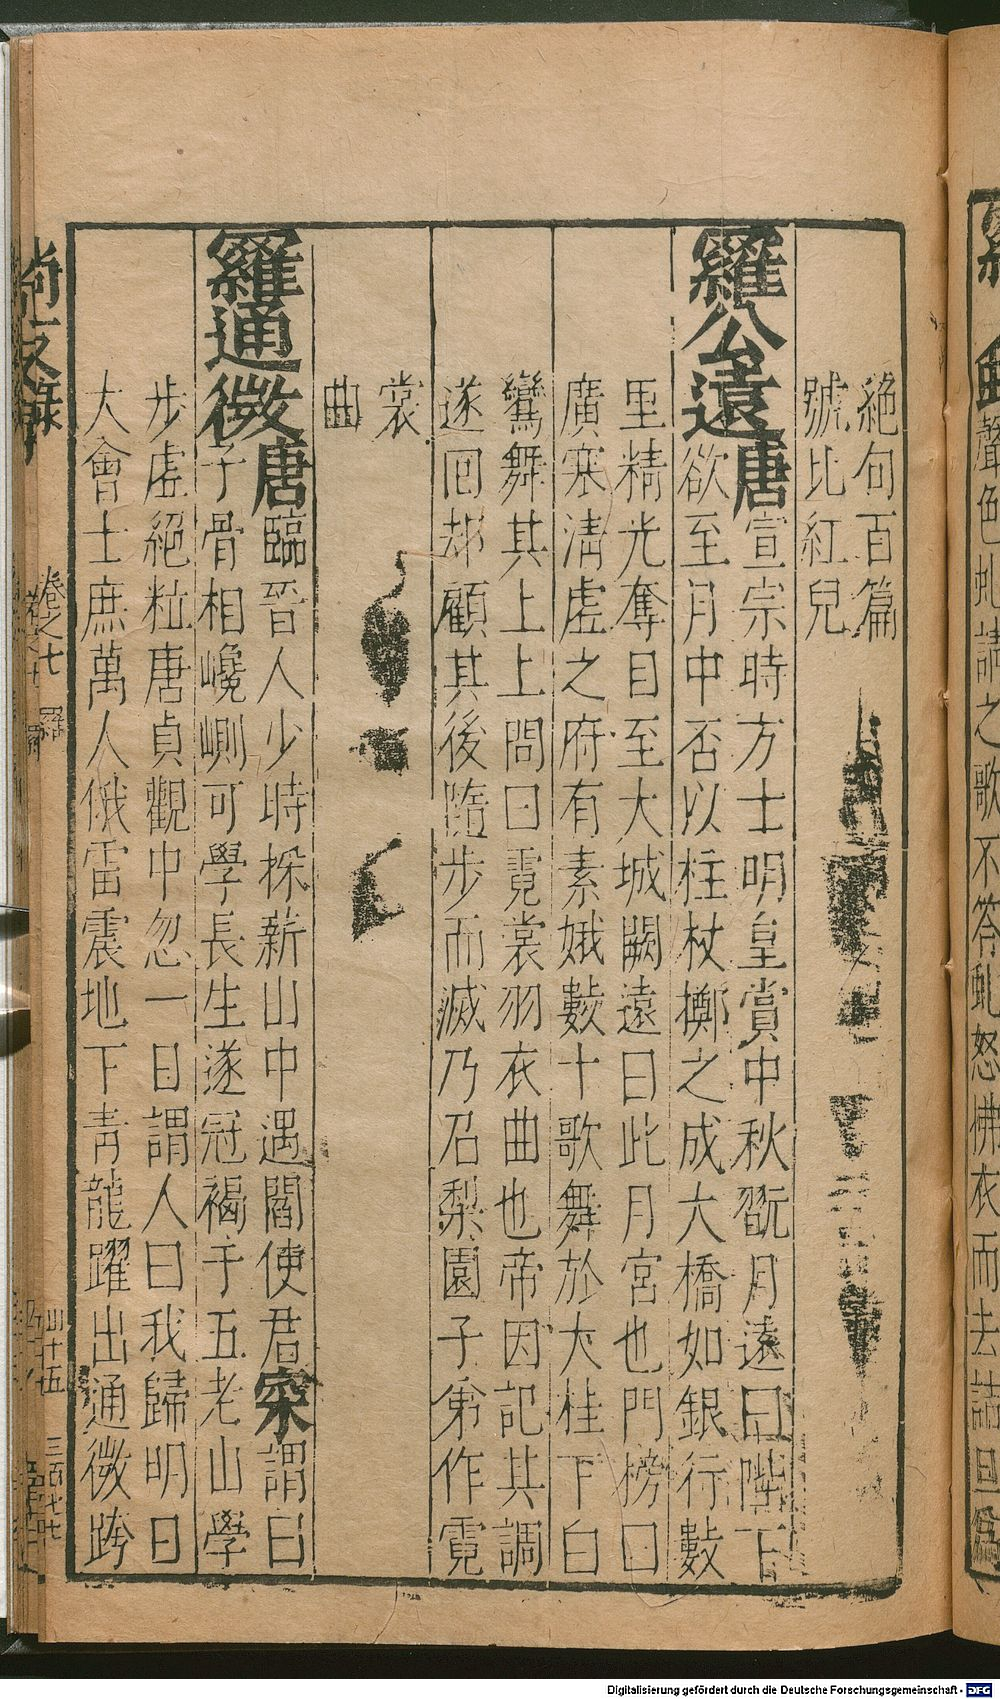 絶句百篇
號比紅兒
羅公遠唐宣宗時方士明皇賞中秋翫月遠曰陛下
欲至月中否以柱杖擲之成大橋如銀行數
里精光奪目至大城闕遠曰此月宮也門榜曰
廣寒淸虛之府有素娥數十歌舞於大桂下白
鸞舞其上上問曰霓裳羽衣曲也帝因記其調
遂囘却顧其後隨步而滅乃召梨園子弟作霓
裳
曲
羅通微唐臨晉人少時採薪山中遇閻使君寀謂曰
子骨相巉崱可學長生遂冠褐于五老山學
步虛絕粒唐貞觀中忽一日謂人曰我歸明日
大會士庶萬人俄雷震地下靑龍躍出通微跨
尚友錄
卷之七
羅
四十五
三百七七
聲色虬請之歌不答虬怒拂衣而去詰旦爲
Digitalisierung gefördert durch die Deutsche Forschungsgemeinschaft - DFG